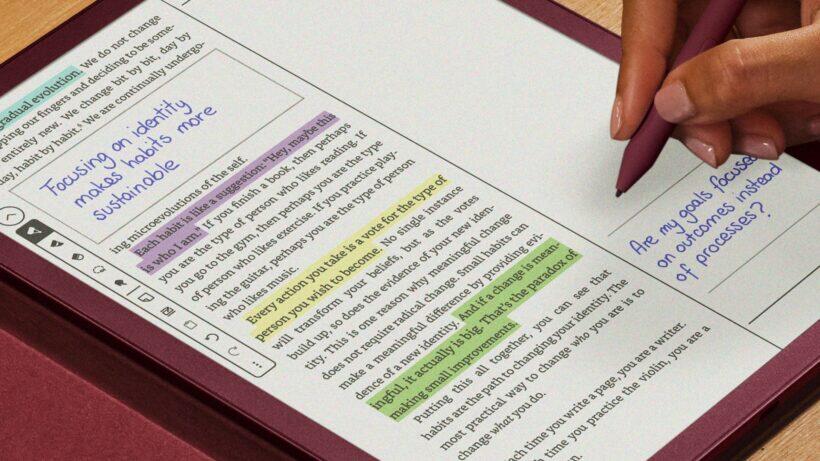 gradual evolution. We do not change
pping our fingers and deciding to be some-
entirely new. We change bit by bit, day by
day, habit by habit.⁶ We are continually undergo-
Focusing on identity
makes habits more
sustainable
ing microevolutions of the self.
Each habit is like a suggestion: "Hey, maybe this
is who I am." If you finish a book, then perhaps
you are the type of person who likes reading. If
you go to the gym, then perhaps you are the type
of person who likes exercise. If you practice play-
ing the guitar, perhaps you are the type of person
who likes music.
Every action you take is a vote for the type of
person you wish to become. No single instance
will transform your beliefs, but as the votes
build up, so does the evidence of your new iden-
tity. This is one reason why meaningful change
does not require radical change. Small habits can
make a meaningful difference by providing evi-
dence of a new identity. And if a change is mean-
ingful, it actually is big. That's the paradox of
making small improvements.
Putting this all together, you can see that
habits are the path to changing your identity. The
most practical way to change who you are is to
change what you do.
ach time you write a page, you are a writer.
h time you practice the violin, you are a
Are my goals focused
on outcomes instead
of processes?